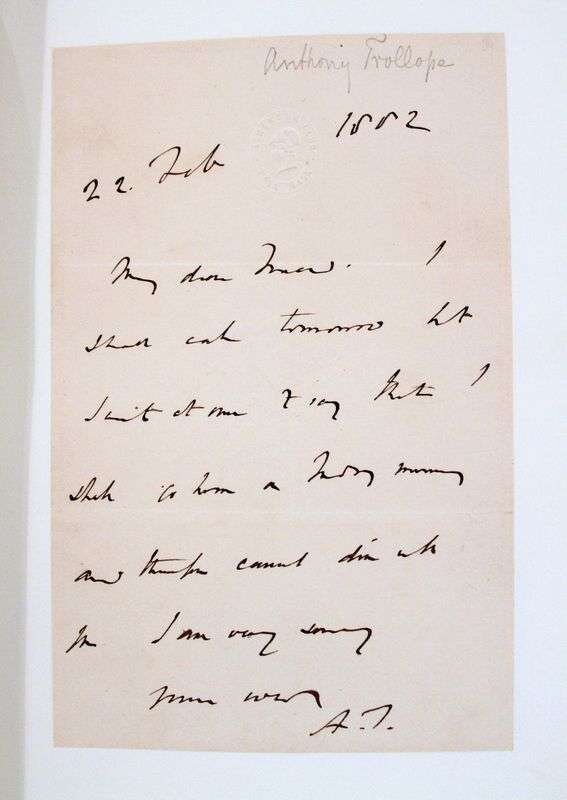 Anthony Trollope
22. Feb 1882
My dear                 I
shall call tomorrow but
I write at once to say that I
shall go home on Friday morning
and therefore cannot dine with
you I am very sorry
yours
A.T.